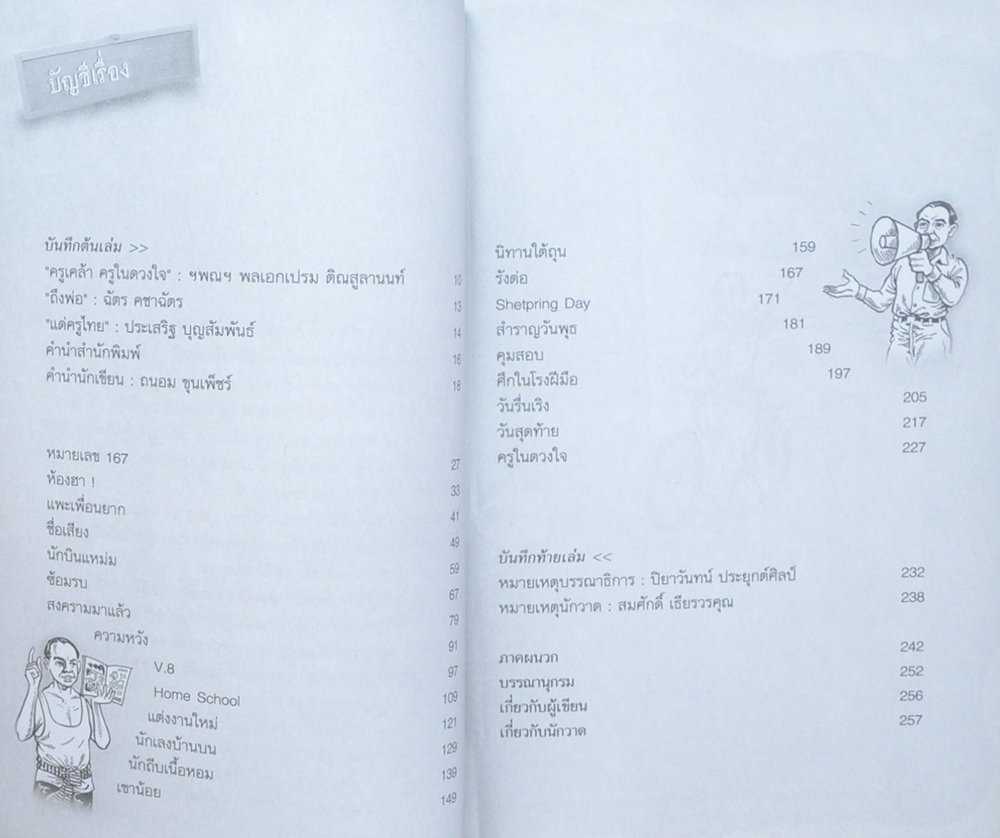 บัญชีเรื่อง
บันทึกต้นเล่ม >>
"ครูเคล้า ครูในดวงใจ" : ฯพณฯ พลเอกเปรม ติณสูลานนท์ 10
"ถึงพ่อ" : ฉัตร คชาฉัตร 13
"แด่ครูไทย" : ประเสริฐ บุญสัมพันธ์ 14
คำนำสำนักพิมพ์ 16
คำนำนักเขียน : ถนอม ขุนเพ็ชร์ 18
หมายเลข 167 27
ห้องฮา ! 33
แพะเพื่อนยาก 41
ชื่อเสียง 49
นักบินแหม่ม 59
ซ้อมรบ 67
สงครามมาแล้ว 79
ความหวัง 91
V.8 97
Home School 109
แต่งงานใหม่ 121
นักเลงบ้านบน 129
นักถีบเนื้อหอม 139
เขาน้อย 149
นิทานใต้ถุน 159
รังต่อ 167
Shetpring Day 171
สำราญวันพุธ 181
คุมสอบ 189
ศึกในโรงฝึมือ 197
วันรื่นเริง 205
วันสุดท้าย 217
ครูในดวงใจ 227
บันทึกท้ายเล่ม <<
หมายเหตุบรรณาธิการ : ปิยาวันทน์ ประยุกต์ศิลป์ 232
หมายเหตุนักวาด : สมศักดิ์ เธียรวรคุณ 238
ภาคผนวก 242
บรรณานุกรม 252
เกี่ยวกับผู้เขียน 256
เกี่ยวกับนักวาด 257